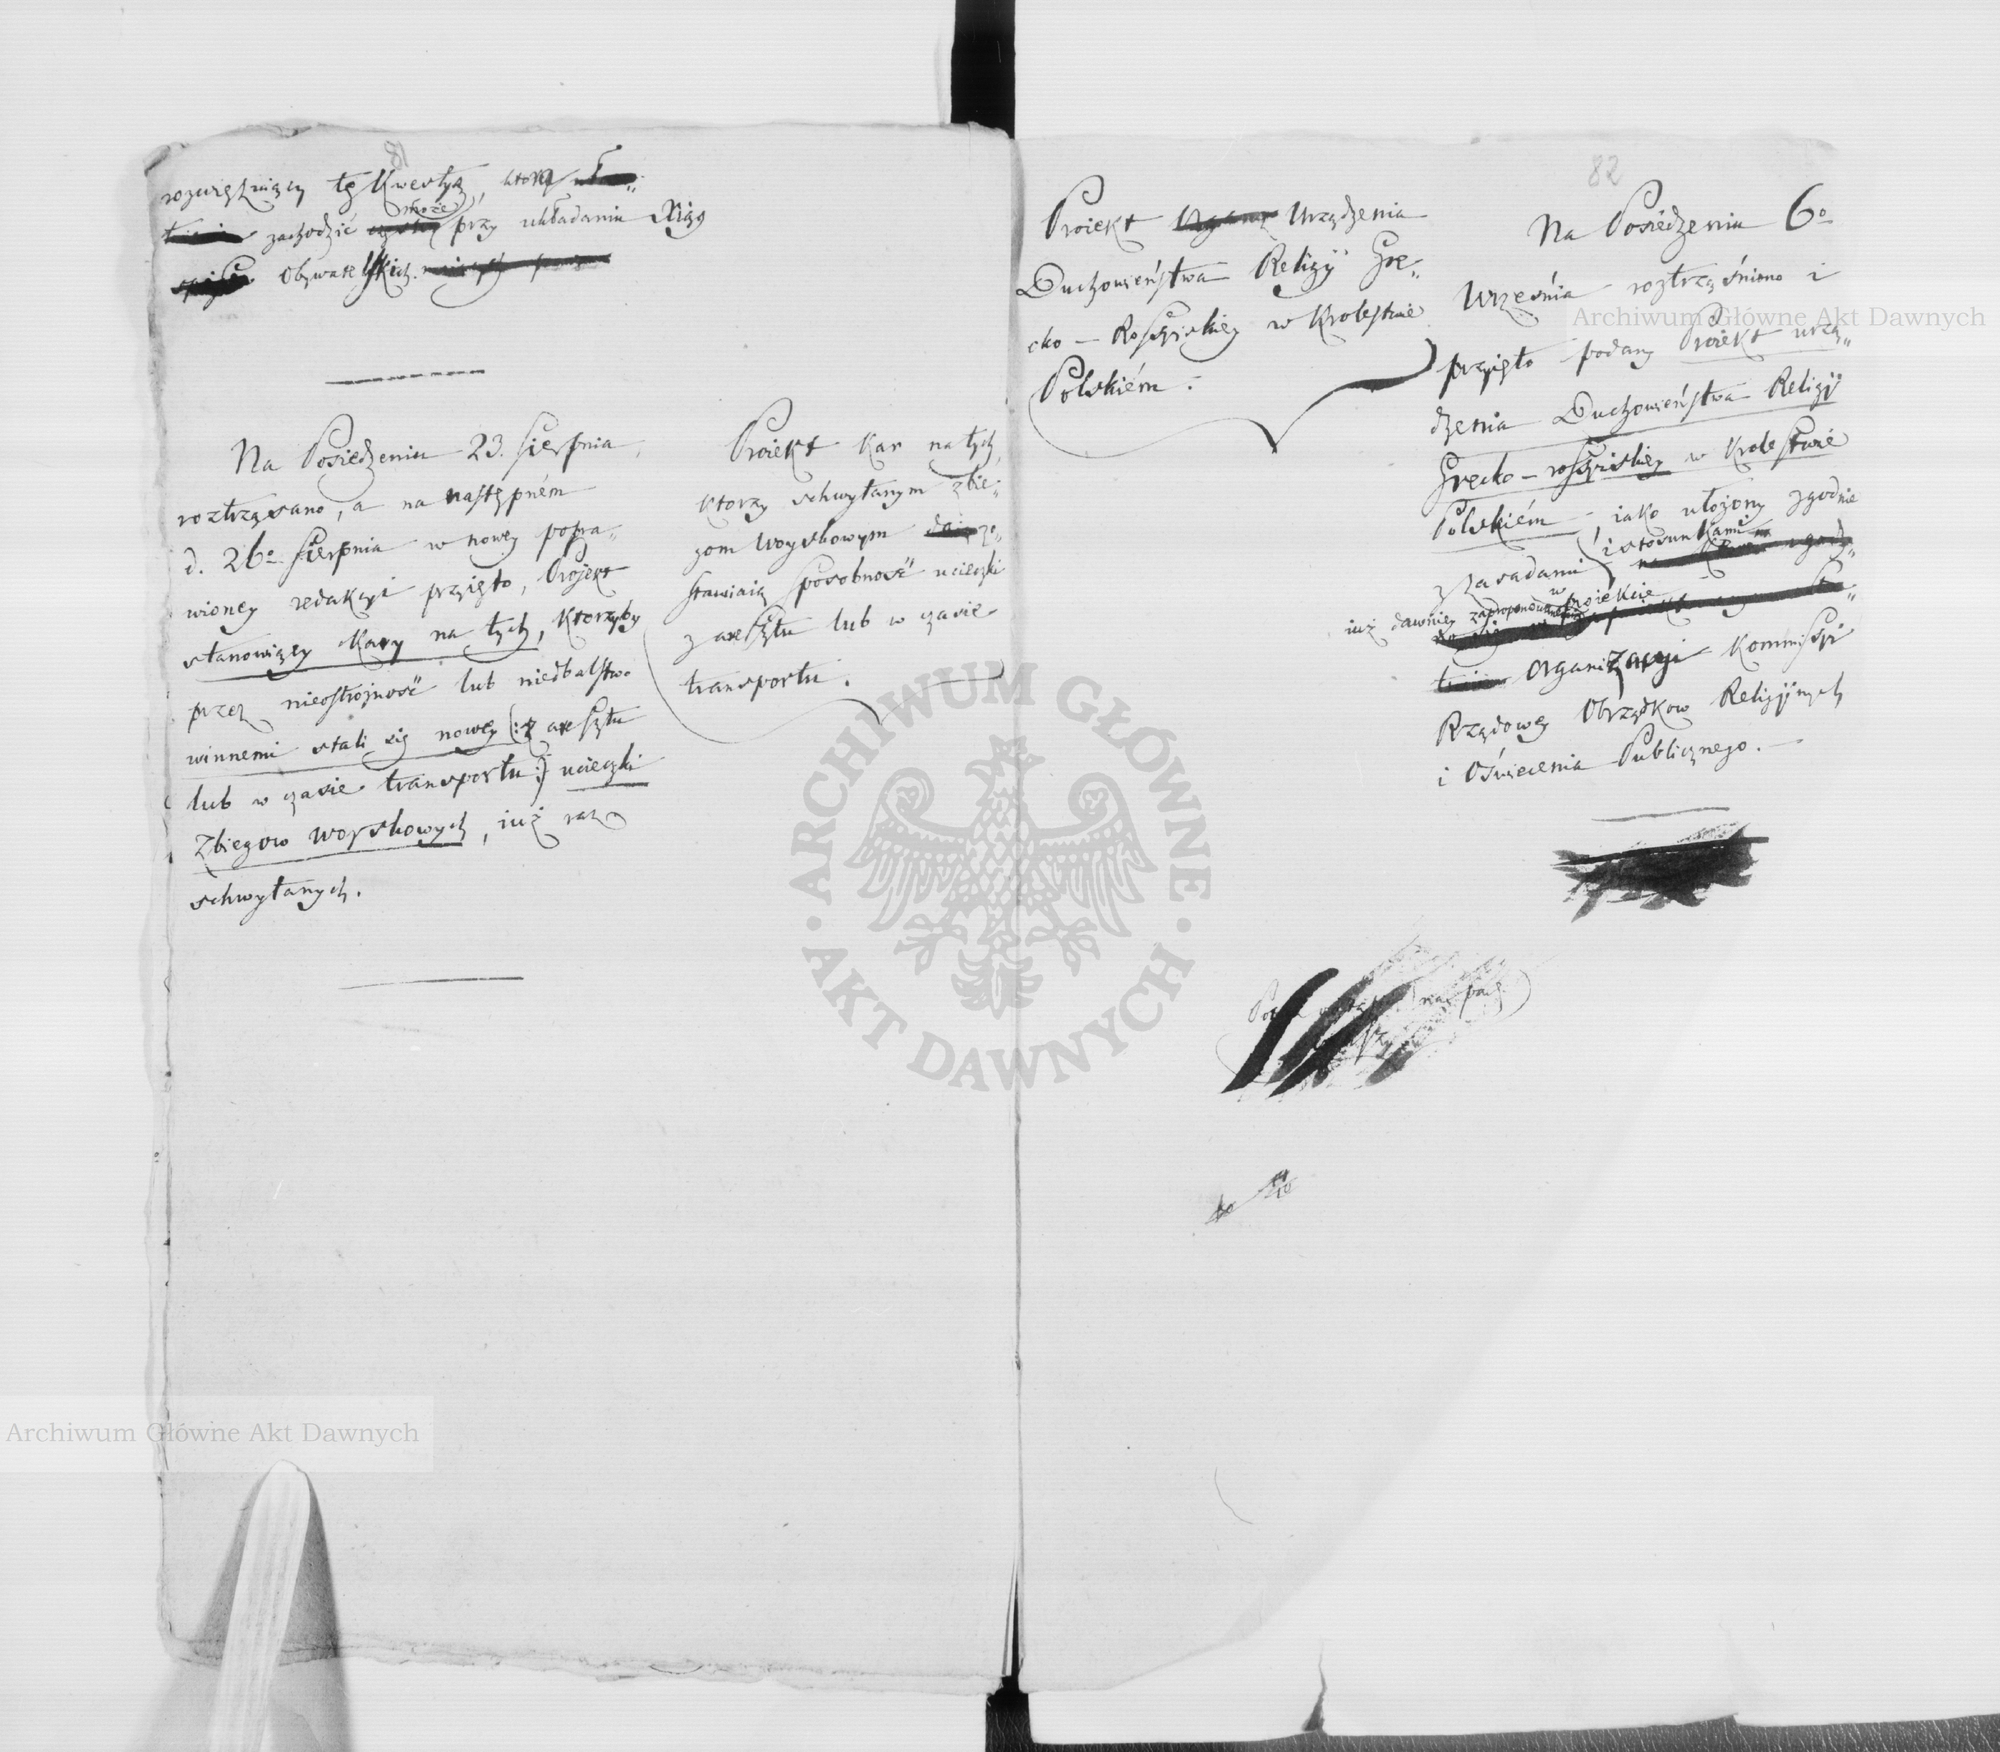 81
rozwiązuiący tę Kwestyą, ktorą
zachodzić może przy układaniu Xiąg
Obywatelskich.
Na Posiedzeniu 23. Sierpnia,
roztrząsano, a na następném
d. 26o Sierpnia w nowey popra„
wioney redakcyi przyięto, Projekt
stanowiący Kary na tych, Ktorzyby
przez nieostrożność lub niedbalstwo
winnemi stali się nowey (: z aresztu
lub w czasie transportu :) ucieczki
Zbiegow woyskowych, iuż raz
schwytanych.
Proiekt Kar na tych,
Ktorzy schwytanym zbie„
gom woyskowym zo„
stawiaią sposobność ucieczki
z aresztu lub w czasie
transportu.
82
Proiekt Urządzenia
Duchowieństwa Religyi Gre„
cko – Rossyiskiey w Krolestwie
Polskiém :
Na Posiedzeniu 6o
Września roztrząśniono i
przyięto podany Proiekt urzą„
dzenia Duchowieństwa Religyi
Grecko – rossyiskiey w Krolestwie
Polskiém, iako ułożony zgodnie
z zasadami i stosunkami
iuż dawniey zaproponowanemi w proiekcie
Organizacyi Kommissyi
Rządowey Obrządkow Religyinych
i Oświecenia Publicznego. –
Archiwum Główne Akt Dawnych
ARCHIWUM GŁÓWNE · AKT DAWNYCH ·
Archiwum Główne Akt Dawnych